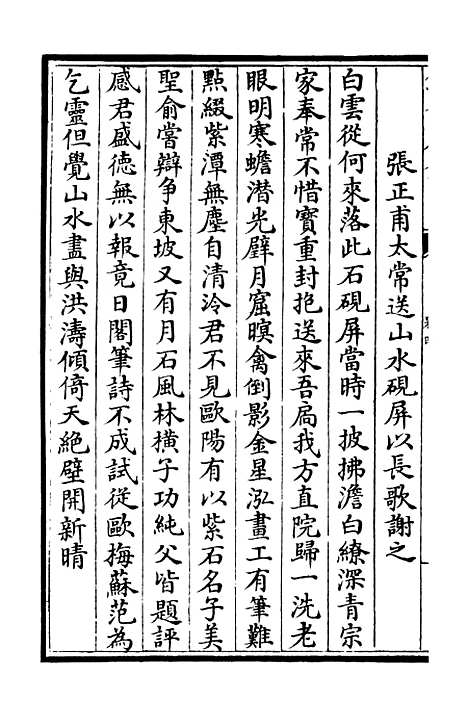 張正甫太常送山水硯屏以長歌謝之
白雲從何來落此石硯屏當時一披拂澹白繚深青宗
家奉常不惜寶重封抱送來吾扃我方直院歸一洗老
眼明寒蟾潛光壁月窟暝禽倒影金星泓畫工有筆難
點綴紫潭無塵自清泠君不見歐陽有以紫石名子美
聖俞嘗辯争東坡又有月石風林橫子功純父皆題評
感君盛德無以報竟日閣筆詩不成試從歐梅蘇范為
乞靈但覺山水盡與洪濤傾倚天絶壁開新晴